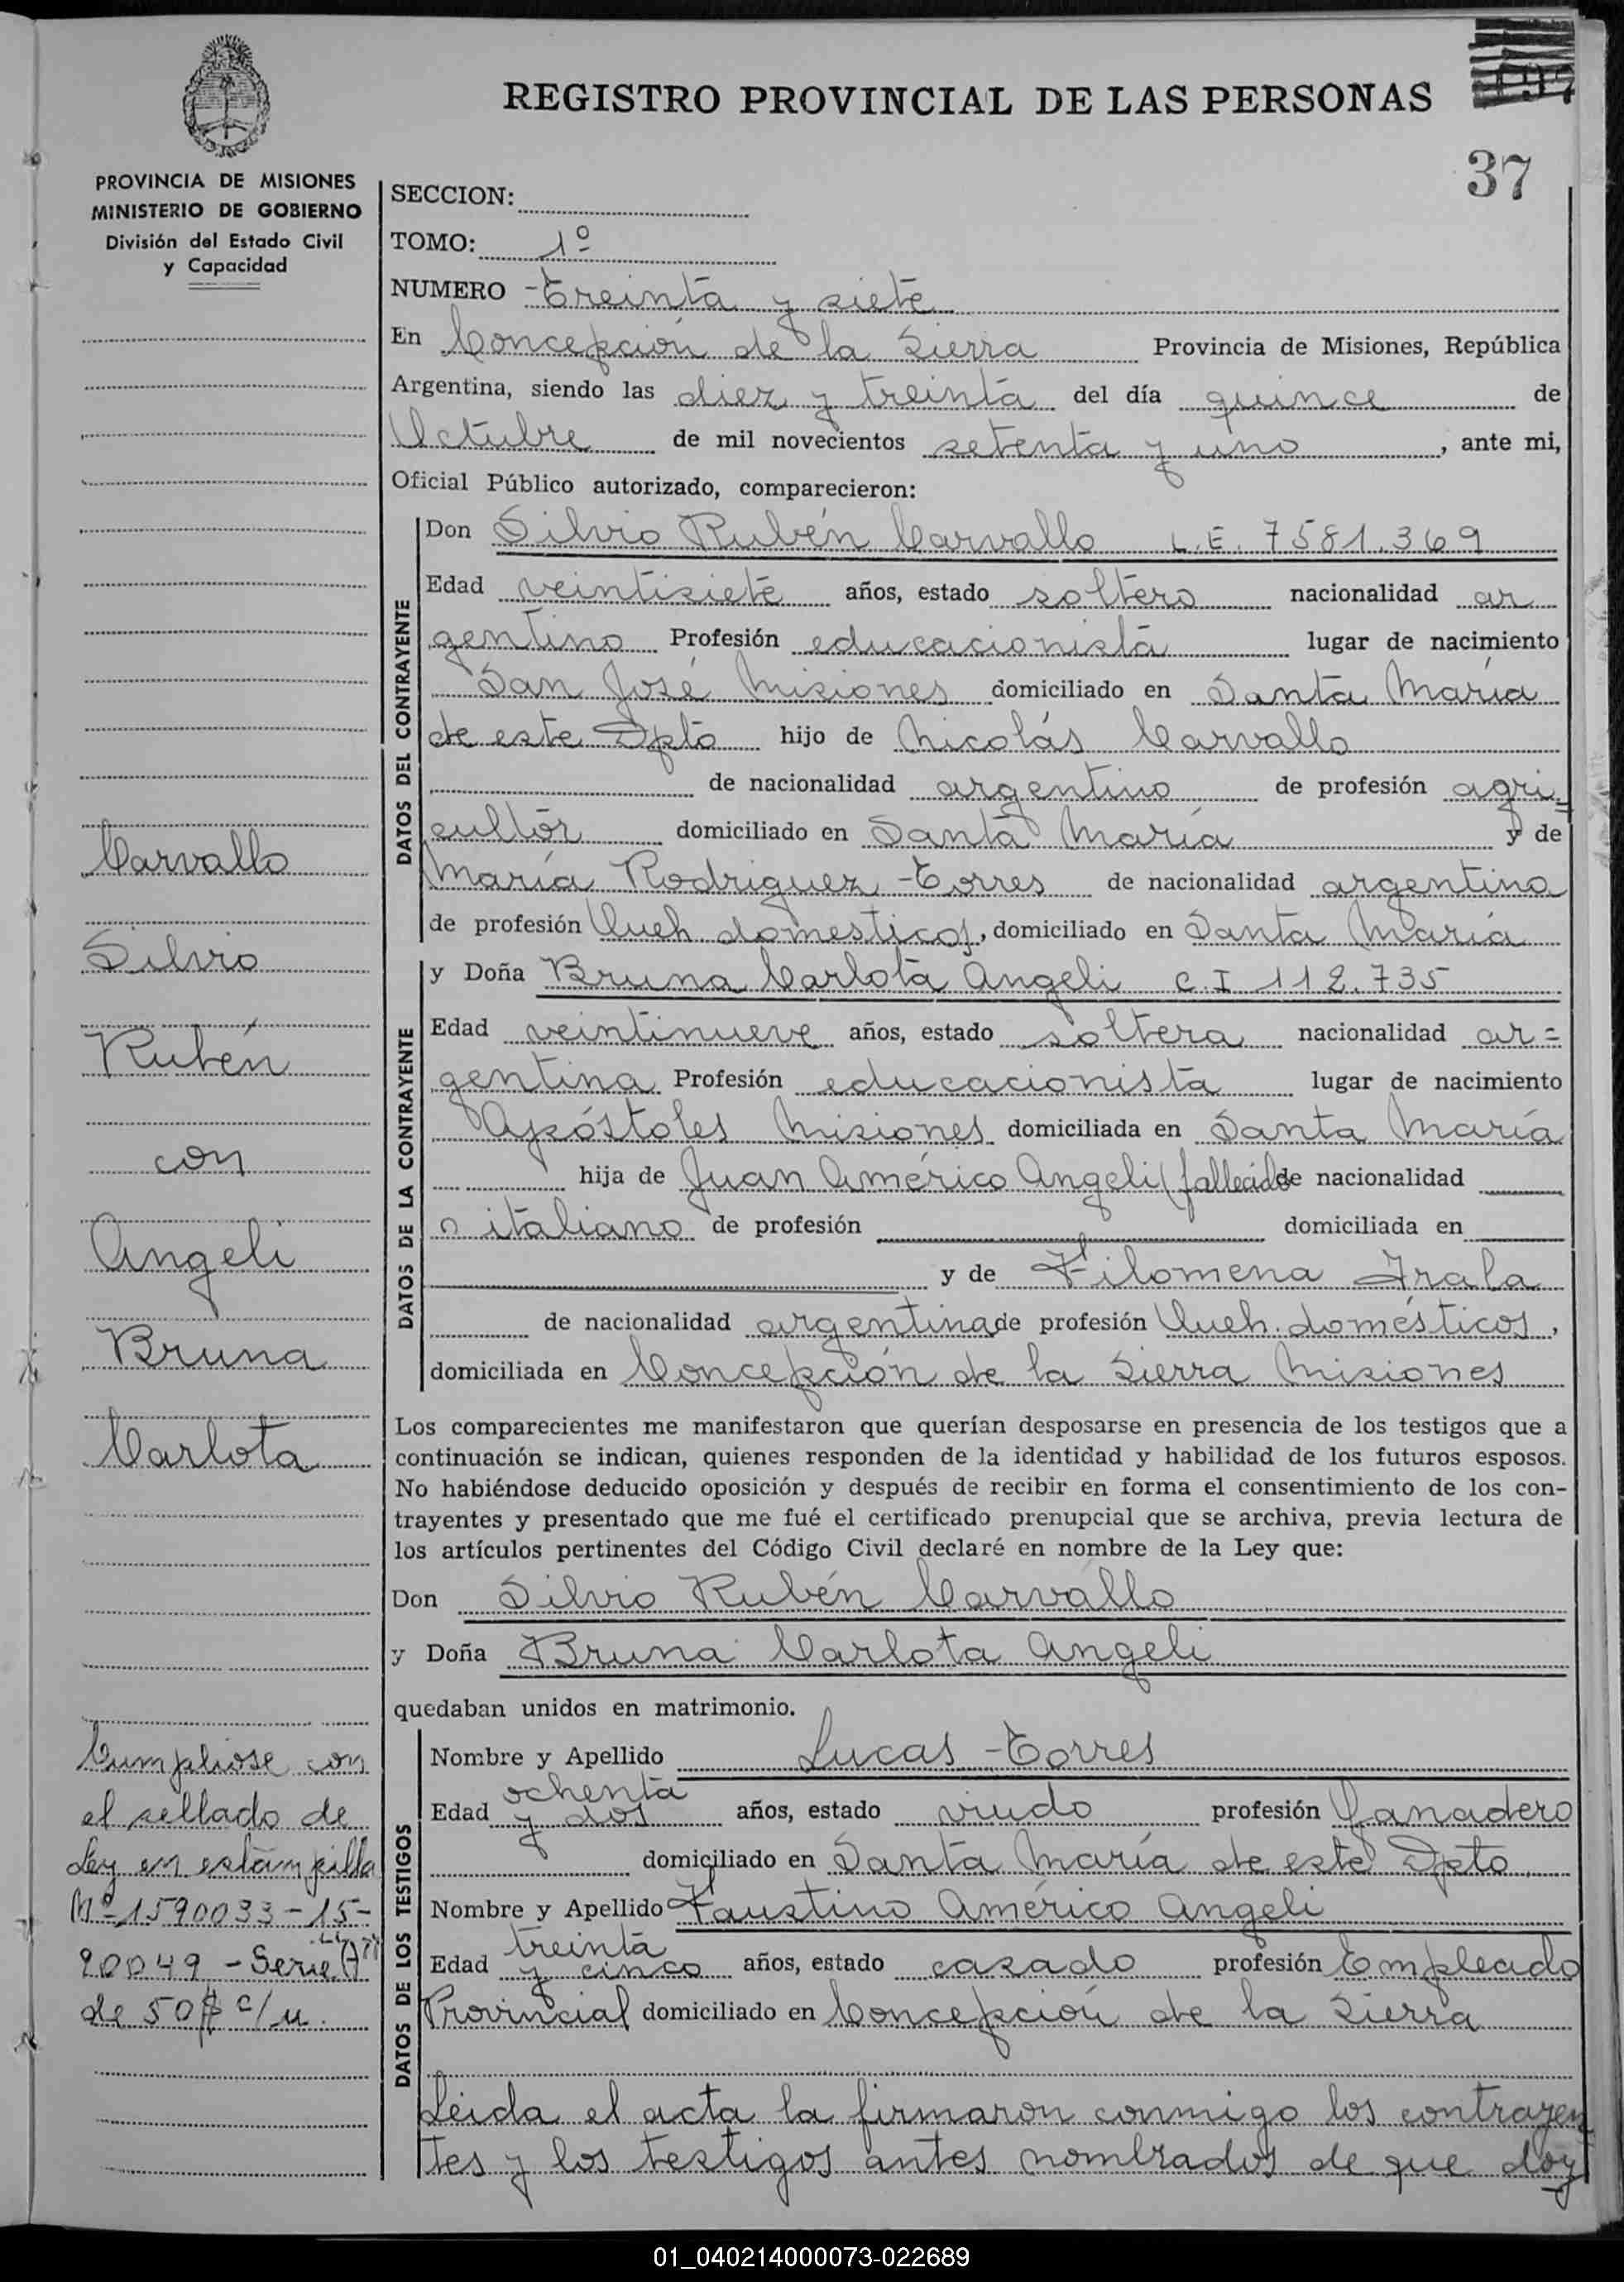 REGISTRO PROVINCIAL DE LAS PERSONAS
37
PROVINCIA DE MISIONES
MINISTERIO DE GOBIERNO
División del Estado Civil
y Capacidad
SECCION:
TOMO: 1º
NUMERO Treinta y siete
En Concepción de la Sierra Provincia de Misiones, República
Argentina, siendo las diez y treinta del día quince de
Octubre de mil novecientos setenta y uno, ante mi,
Oficial Público autorizado, comparecieron:
DATOS DEL CONTRAYENTE
Don Silvio Rubén Carvallo L.E. 7581.369
Edad veintisiete años, estado soltero nacionalidad ar
gentino Profesión educacionista lugar de nacimiento
San José Misiones domiciliado en Santa María
de este Dpto hijo de Nicolás Carvallo
de nacionalidad argentino de profesión agri=
cultor domiciliado en Santa María y de
María Rodriguez Torres de nacionalidad argentina
de profesión Queh. domesticos, domiciliado en Santa María
DATOS DE LA CONTRAYENTE
y Doña Bruna Carlota Angeli C.I 112.735
Edad veintinueve años, estado soltera nacionalidad ar=
gentina Profesión educacionista lugar de nacimiento
Apóstoles Misiones domiciliada en Santa María
hija de Juan Américo Angeli (fallecido de nacionalidad
italiano de profesión domiciliada en
y de Filomena Irala
de nacionalidad argentina de profesión Queh. domésticos,
domiciliada en Concepción de la Sierra Misiones
Los comparecientes me manifestaron que querían desposarse en presencia de los testigos que a
continuación se indican, quienes responden de la identidad y habilidad de los futuros esposos.
No habiéndose deducido oposición y después de recibir en forma el consentimiento de los con-
trayentes y presentado que me fué el certificado prenupcial que se archiva, previa lectura de
los artículos pertinentes del Código Civil declaré en nombre de la Ley que:
Don Silvio Rubén Carvallo
y Doña Bruna Carlota Angeli
quedaban unidos en matrimonio.
DATOS DE LOS TESTIGOS
Nombre y Apellido Lucas Torres
Edad ochenta y dos años, estado viudo profesión Ganadero
domiciliado en Santa María de este Dpto.
Nombre y Apellido Faustino Américo Angeli
Edad treinta y cinco años, estado casado profesión Empleado
Provincial domiciliado en Concepción de la Sierra
Leida el acta la firmaron conmigo los contrayen
tes y los testigos antes nombrados de que doy
Carvallo
Silvio
Rubén
con
Angeli
Bruna
Carlota
Cumpliose con
el sellado de
Ley en estampilla
Nº 1590033-15-
90049 - Serie A
de 50$ c/u.
01_040214000073-022689